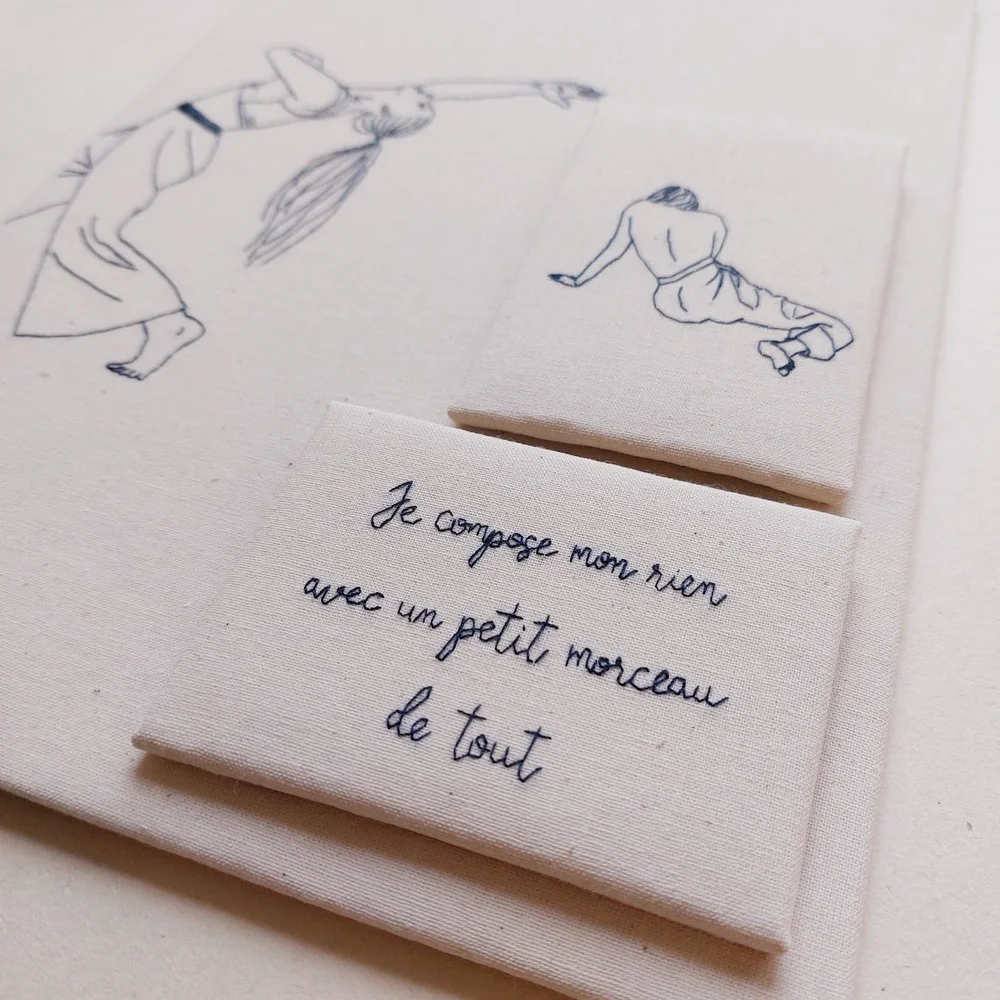 Je compose mon rien
avec un petit morceau
de tout